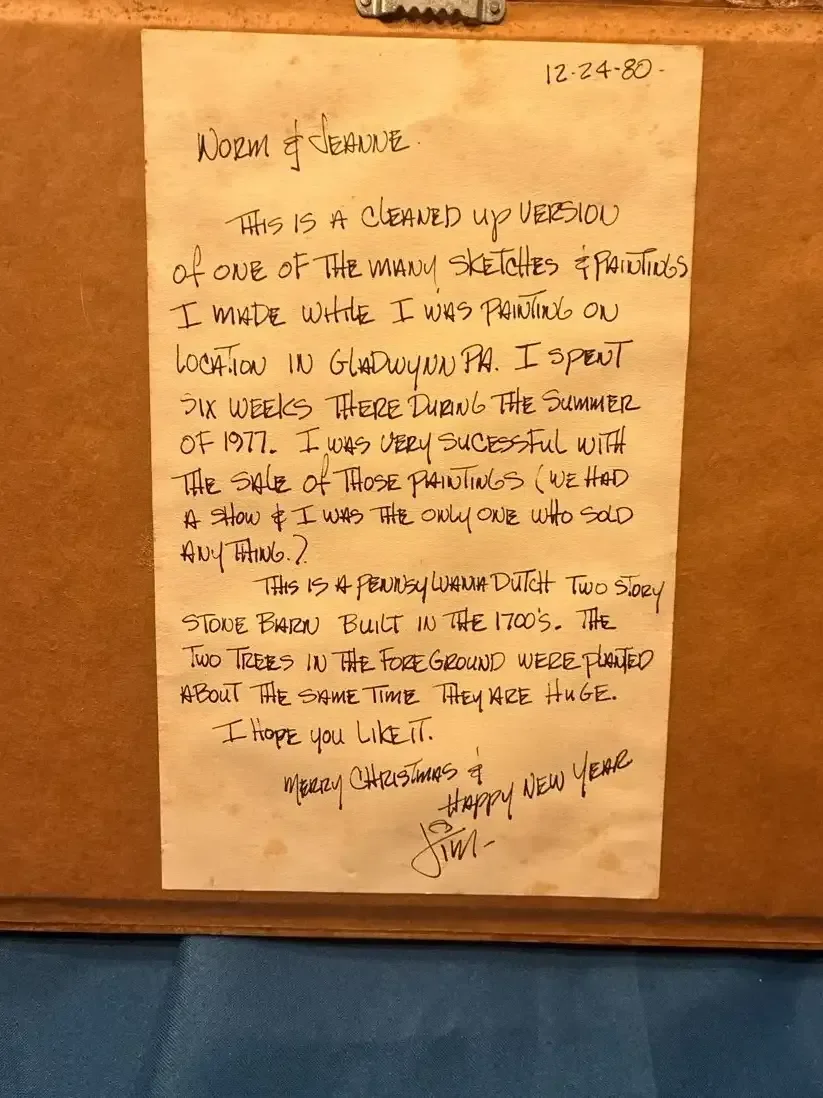 12-24-80-
NORM & JEANNE.
THIS IS A CLEANED UP VERSION
Of ONE OF THE MANY SKETCHES & PAINTINGS
I MADE WHILE I WAS PAINTING ON
LOCATION IN GLADWYNN PA. I SPENT
SIX WEEKS THERE DURING THE SUMMER
OF 1977. I WAS VERY SUCESSFUL WITH
THE SALE Of THOSE PAINTINGS (WE HAD
A SHOW & I WAS THE ONLY ONE WHO SOLD
ANYTHING.)
THIS IS A PENNSYLVANIA DUTCH TWO STORY
STONE BARN BUILT IN THE 1700'S. THE
TWO TREES IN THE FOREGROUND WERE PLANTED
ABOUT THE SAME TIME THEY ARE HUGE.
I HOPE YOU LIKE IT.
MERRY CHRISTMAS &
HAPPY NEW YEAR
JIM-